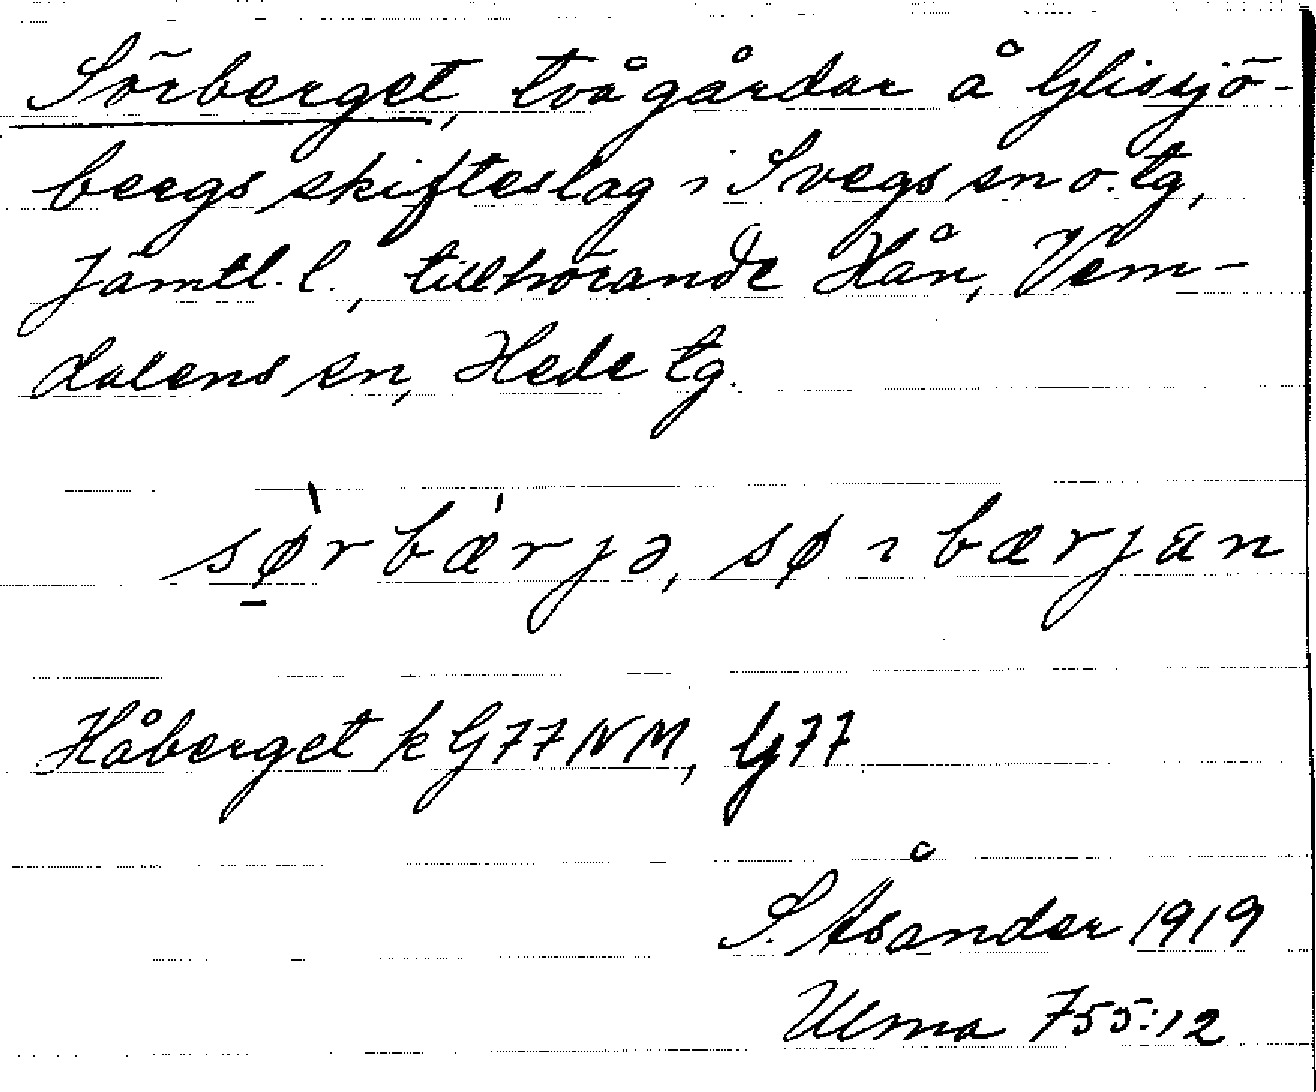 Sörberget, två gårdar å Glissjö-
bergs skifteslag i Svegs sn o. tg,
Jämtl. l., tillhörande Hån, Vem-
dalens sn, Hede tg.
sø̀rbæ'rjə, sø ı bærjan
Håberget k G77NM, G77
S. Åsander 1919
Ulma 755:12